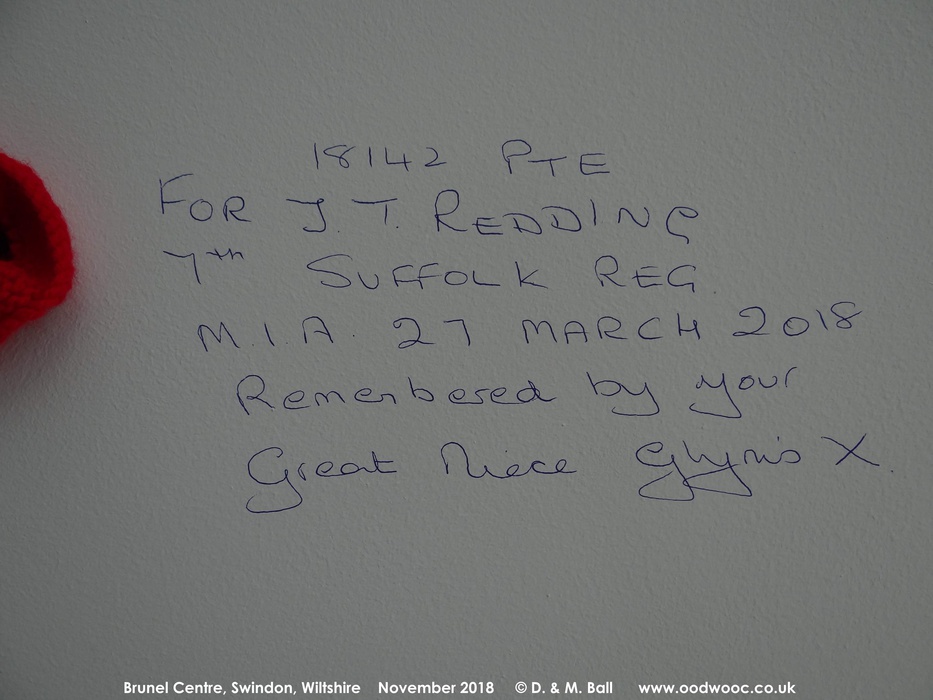 18142 PTE
FOR J. T. REDDING
7th SUFFOLK REG.
M.I.A. 27 MARCH 2018
Remembered by your
Great Niece Glynis X.
Brunel Centre, Swindon, Wiltshire November 2018 © D. & M. Ball www.oodwooc.co.uk